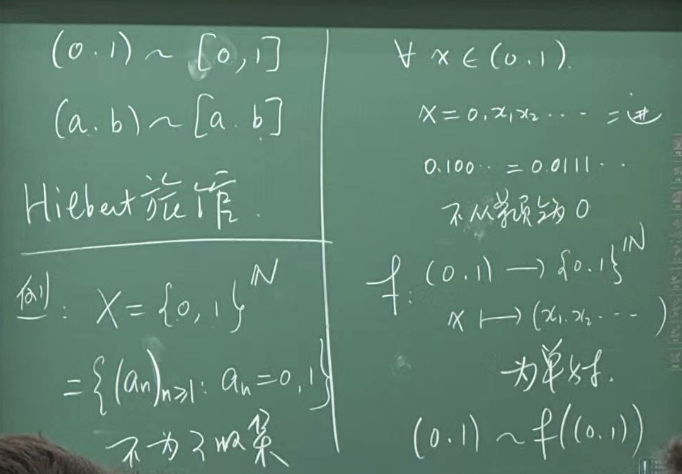 (0.1) ~ [0,1]
(a.b) ~ [a.b]
Hilbert 旅馆.
例: X = {0,1}^ℕ
= {(aₙ)ₙ≥₁: aₙ = 0,1}
不为可数集
∀ x ∈ (0.1).
x = 0.x₁x₂ ⋯ 二进
0.100⋯ = 0.0111⋯
不从某项全为0
f: (0.1) → {0.1}^ℕ
x ↦ (x₁.x₂ ⋯)
为单射.
(0.1) ~ f((0.1))